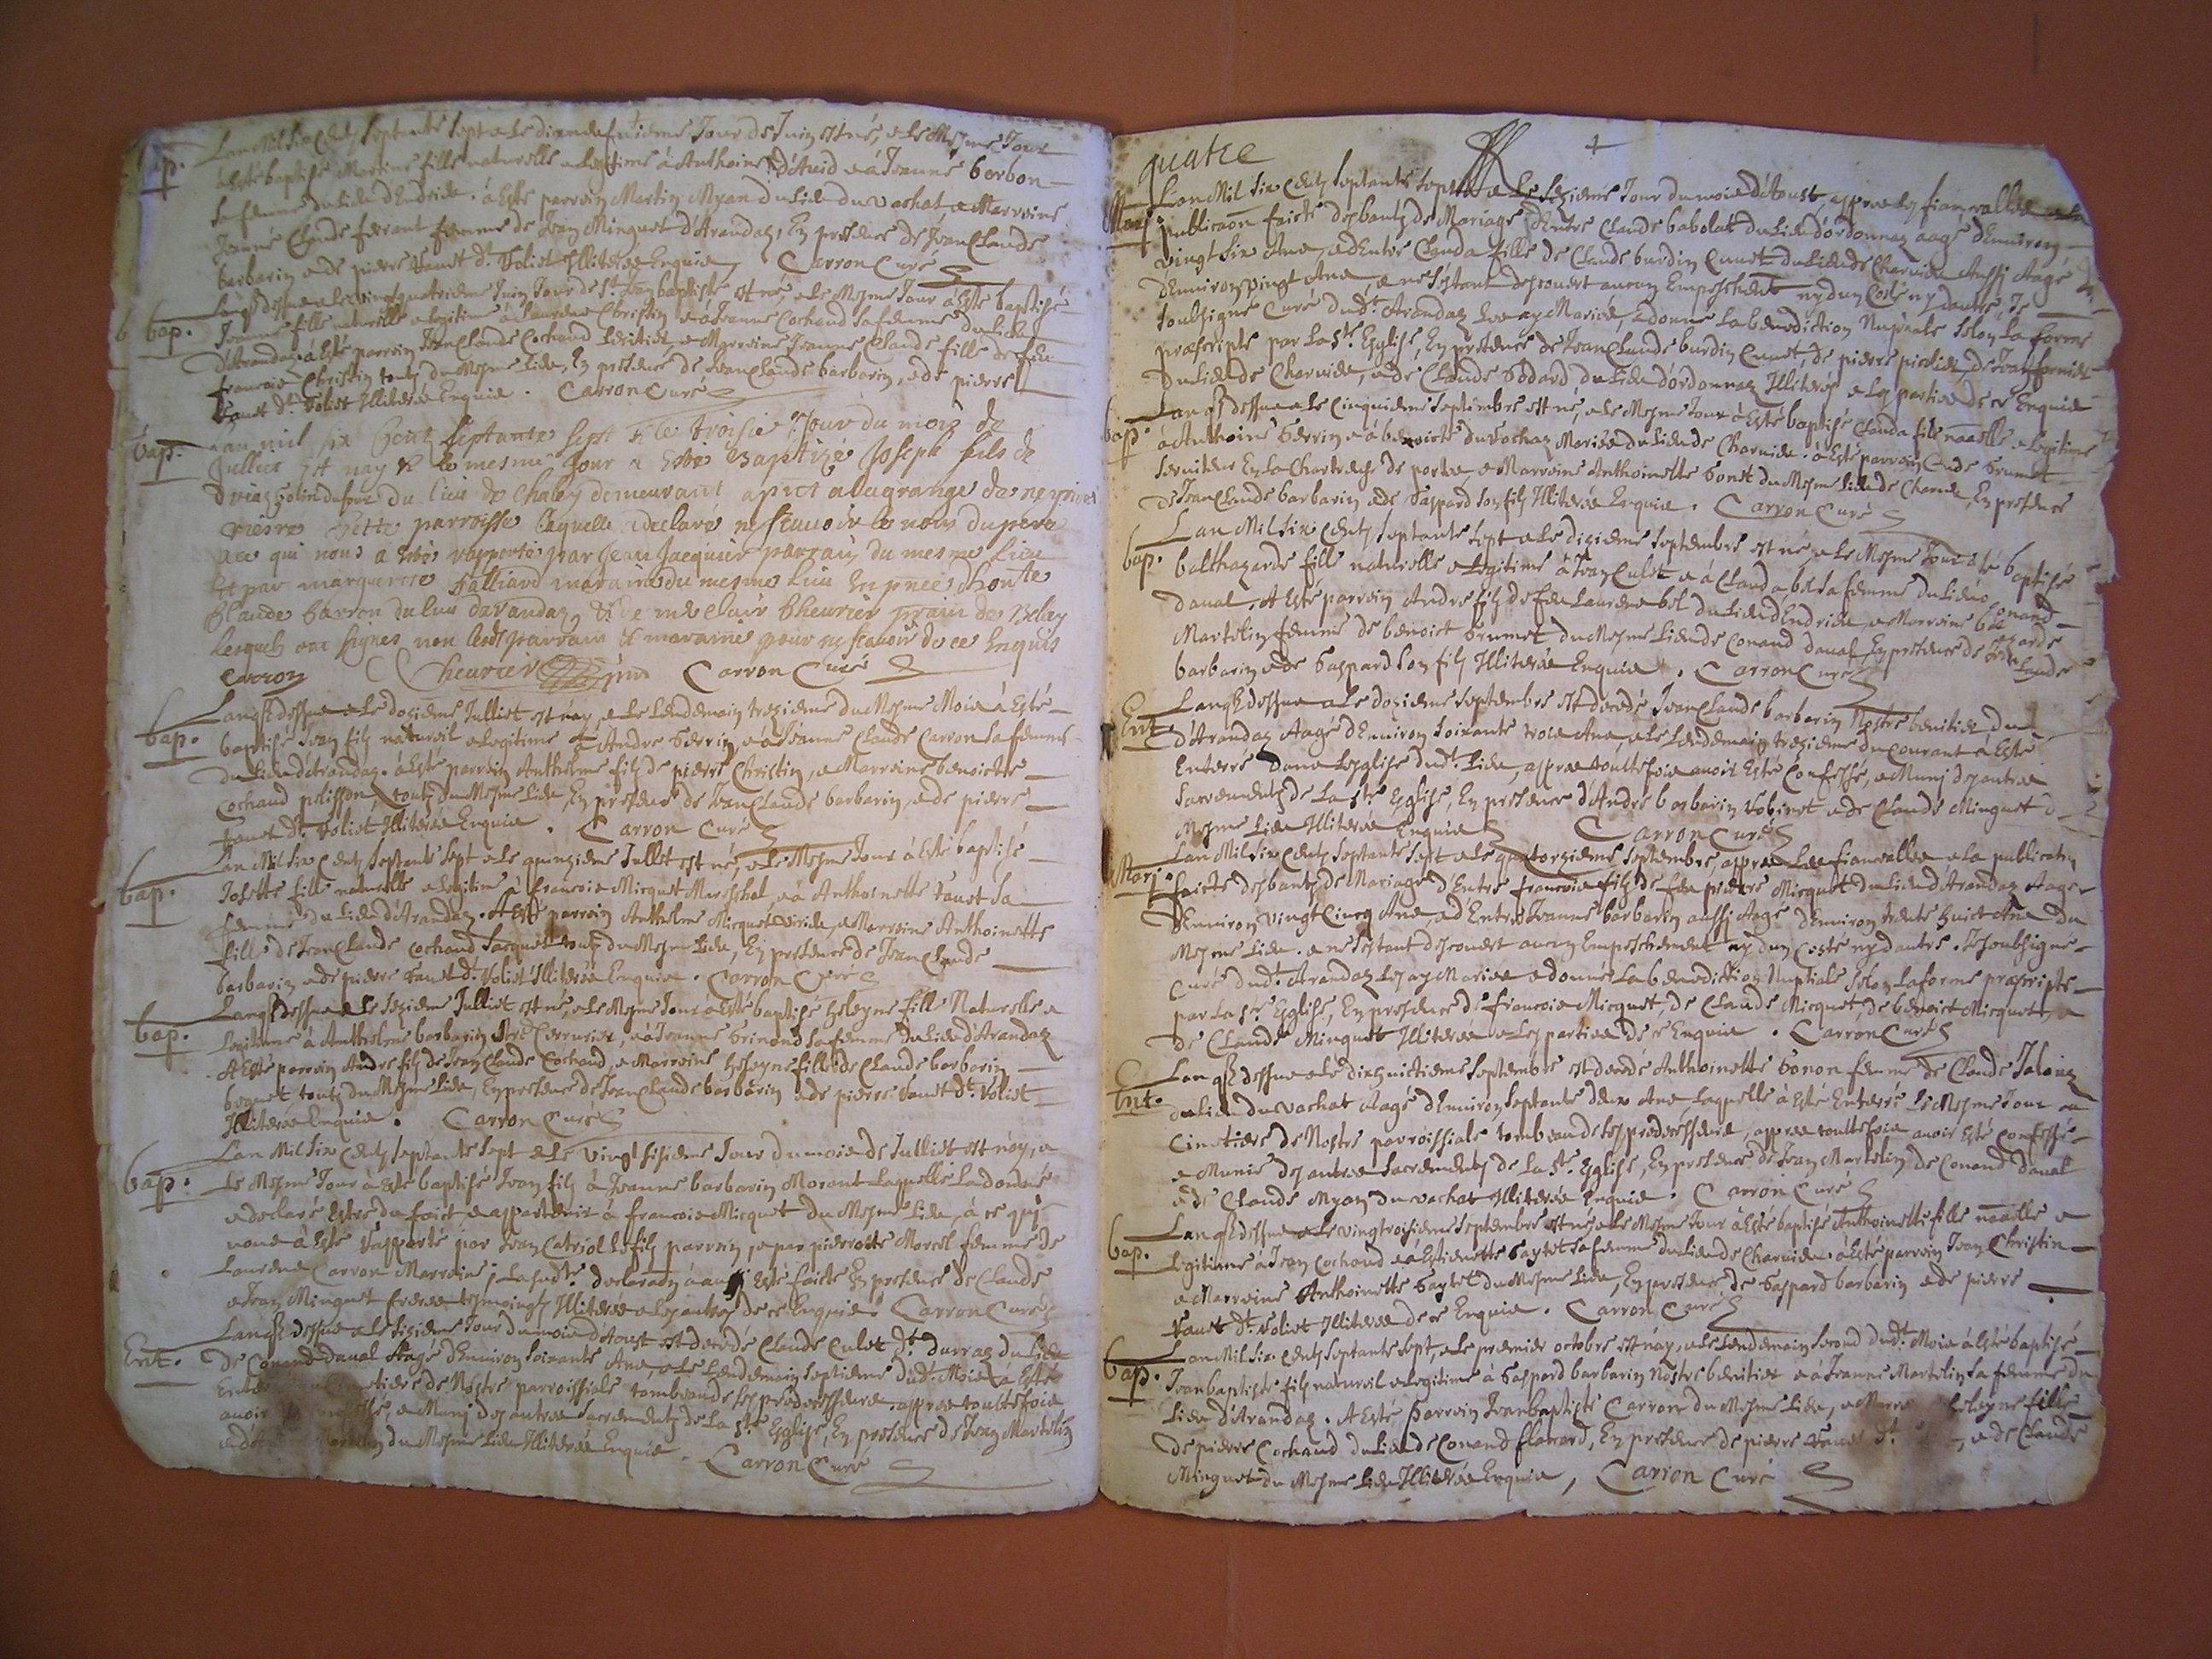 bap.
Lan Mil Six Centz Septante Sept e Le Jour de Juin est né, e Le Mesme Jour
à Esté baptisé Martine fille naturelle e Legitime à Anthoine David e à Jeanne borbon
sa femme du Lieu dEndrieu. à Esté parrein Martin Myan du Lieu du vachat, e Marreine
Jeanne Claude ferrant femme de Jean Minguet d'Arandaz, En presence de Jean Claude
barbarin e de pierre Vanet dt. Voliet Illiterés Enquis, Carron Curé
bap.
Lan q. dessus e Le vingt quatrieme Juin Jour de St. Jean baptiste est né, e Le Mesme Jour à Esté baptisé
Jeanne fille naturelle e Legitime à Laurent Christin e à Jeanne Cochand sa femme du Lieu
d'Arandaz. à Esté parrein Jean Claude Cochand, e Marreine Jeanne Claude fille de feu
francois Christin toutz du Mesme Lieu, En presence de Jean Claude barbarin, e de pierre
Vanet dt. Voliet Illiterés Enquis. Carron Curé
bap.
Lan mil six Cent septante sept & le troisie. Jour du mois de
Jullet est nay & le mesme Jour a Esté Baptizé Joseph fils de
du lieu de Chaley demeurant a la grange de
pierre Cette parroisse laquelle a declaré ne scauoir le nom du pere
ace qui nous a Esté rapporté par Jean Jacquier parrain du mesme lieu
Et par marguerite Falliard maraine du mesme lieu En pnce dhonte
Claude Carron du lieu darandaz, & de mre Clair Cheurier prain de Belay
lesquels ont signes non lesdt parrain & maraine pour ne scauoir de ce Enquis
Carron Cheurier Carron Curé
bap.
Lan q. dessus e Le dozieme Julliet est nay, e Le Lendemain trezieme du Mesme Mois à Esté
baptisé Jean filz naturel e Legitime à Andre Perrin e à Jeanne Claude Carron sa femme
du Lieu d'Arandaz. à Esté parrein Anthelme filz de pierre Christin, e Marreine benoictte
Cochand pelisson, toutz du Mesme Lieu, En presence de Jean Claude barbarin, e de pierre
Vanet dt. Voliet Illiterés Enquis. Carron Curé
bap.
Lan Mil Six Centz Septante Sept e Le quinzieme Jullet est né, e Le Mesme Jour à Esté baptisé
Josette fille naturelle e Legitime à francois Micquet Mareschal e à Anthoinette Vanet sa
femme du Lieu d'Arandaz. A Esté parrein Anthelme Micquet, e Marreine Anthoinette
fille de Jean Claude Cochand Jacquet toutz du Mesme Lieu, En presence de Jean Claude
barbarin e de pierre Vanet dt. Voliet Illiterés Enquis. Carron Curé
bap.
Lan q. dessus e Le sezieme Julliet est né, e Le Mesme Jour à Esté baptisé heleyne fille Naturelle e
Legitime à Anthelme barbarin, e à Jeanne sa femme du Lieu d'Arandaz
A Esté parrein Andre filz de Jean Claude Cochand, e Marreine heleyne fille de Claude barbarin
toutz du Mesme Lieu, En presence de Jean Claude barbarin e de pierre Vanet dt. Voliet
Illiterés Enquis. Carron Curé
bap.
Lan Mil Six Centz Septante Sept e Le vingt sixieme Jour du mois de Julliet est nay, e
Le Mesme Jour à Esté baptisé Jean filz à Jeanne barbarin Morant Laquelle La donné
e declaré Estre du faict e appartenir à francois Micquet du Mesme Lieu, à ce qui
nous à Esté rapporté par Jean Catriol Le filz parrein, e par pierrotte Morel femme de
Laurent Carron Marreine; La susdt. à aussi Esté faicte En presence de Claude
e Jean Minguet freres tesmoingtz Illiterés e Les autres de ce Enquis. Carron Curé
Ent.
Lan q. dessus e Le sixieme Jour du mois d'Aoust est decedé Claude Culet dt. durraz du Lieu
de Conand Daual Aagé dEnuiron soixante Ans, e Le Lendemain septieme dudt. Mois à Esté
de Nostre parroissiale tombeau de ses predecesseurs, appres touttefois
auoir, e Muni des autres sacrementz de La Ste. Eglise, En presence de Jean Martelin
du Mesme Lieu Illiterés Enquis. Carron Curé
quatre 4
Marj.
Lan Mil Six Centz Septante Sept e Le sezieme Jour du mois d'Aoust appres Les fiançailles e La
publicaõn faicte des bantz de Mariage dEntre Claude babolat du Lieu d'ordonnaz aagé dEnuiron
vingt Six Ans, e dEntre Clauda fille de Claude burdin Cunet du Lieu de Charuieu Aussi Aagé
dEnuiron vingt Ans, e ne s'estant descouuert aucun Empeschement ny dun Costé ny dautre, Je
soubsigné Curé dudt. Arandaz Les ay Mariés, e donné La benediction Nuptiale selon La forme
prescripte par La Ste. Eglise, En presence de Jean Claude burdin Cunet, de pierre, de Jean
du Lieu de Charuieu, e de Claude Godard du Lieu d'ordonnaz Illiterés e Les parties de ce Enquis
bap.
Lan q. dessus e Le Cinquieme septembre est né, e Le Mesme Jour à Esté baptisé Clauda fille naãlle e Legitime
à Anthoine Perrin e à benoicte du Cochaz Mariés du Lieu de Charuieu. à Esté parrein Claude Brumet
seruiteur En La Chartreuse de portes, e Marreine Anthoinette Bonet du Mesme Lieu de Charuieu, En presence
de Jean Claude barbarin e de Gaspard son filz Illiterés Enquis. Carron Curé
bap.
Lan Mil Six Centz septante sept e Le dixieme septembre est né e Le Mesme Jour à Esté baptisé
balthazarde fille naturelle e Legitime à Jean Culet e à Clauda bel sa femme du Lieu de Conand
daual. A Esté parrein André filz de feu Laurent bel du Lieu dEndrieu, e Marreine balthazarde
Martelin femme de benoict Brumet du Mesme Lieu de Conand daual, En presence de Jean Claude
barbarin e de Gaspard son filz Illiterés Enquis. Carron Curé
Ent.
Lan q. dessus e Le dozieme septembre est decedé Jean Claude barbarin Nostre benitier du
d'Arandaz Aagé dEnuiron soixante trois Ans, e Le Lendemain trezieme du Courant à Esté
Enterré Dans Lesglise dudt. Lieu, appres touttefois auoir Esté Confessé, e Muni des autres
sacrementz de La Ste. Eglise, En presence d'André barbarin Robinet e de Claude Minguet d
Mesme Lieu Illiterés Enquis Carron Curé
Marj.
Lan Mil Six Centz Septante Sept e Le quatorzieme septembre, appres Les fiancailles e La publicatn
faicte des bantz de Mariage d'Entre francois filz de feu pierre Micquet du Lieu d'Arandaz Aagé
dEnuiron vingt Cincq Ans e dEntre Jeanne barbarin aussi Aagé dEnuiron trente huict Ans du
Mesme Lieu. e ne s'estant descouuert aucun Empeschement ny dun Costé ny dautre. Je soubsigné
Curé dudt. Arandaz Les ay Mariés e donné La benediction Nuptiale selon La forme prescripte
par La Ste. Eglise, En presence de francois Micquet, de Claude Micquet, de benoict Micquet, e
de Claude Minguet Illiterés e Les parties de ce Enquis. Carron Curé
Ent.
Lan q. dessus e Le dixhuictieme septembre est decedé Anthoinette Bonon femme de Claude Jaloux
du Lieu du vachat Aagé dEnuiron septante deux Ans, Laquelle à Esté Enterré Le Mesme Jour au
Cimetiere de Nostre parroissiale tombeau de ses predecesseurs, appres touttefois auoir Esté Confessé
e Munie des autres sacrementz de La Ste. Eglise, En presence de Jean Martelin de Conand daual
e de Claude Myan du vachat Illiterés Enquis. Carron Curé
bap.
Lan q. dessus e Le vingtroisieme septembre est né e Le Mesme Jour à Esté baptisé Anthoinette fille naãlle e
Legitime à Jean Cochand e à Estienette Gaytet sa femme du Lieu de Charuieu. à Esté parrein Jean Christin
e Marreine Anthoinette Gaytet du Mesme Lieu, En presence de Gaspard barbarin e de pierre
Vanet dt. Voliet Illiterés de ce Enquis. Carron Curé
bap.
Lan Mil Six Centz septante sept, e Le premier octobre est nay, e Le Lendemain second dudt. Mois à Esté baptisé
Jean baptiste filz naturel e Legitime à Gaspard barbarin Nostre benitier e à Jeanne Martelin sa femme du
Lieu d'Arandaz. A Esté parrein Jean baptiste Carron du Mesme Lieu, e Marre heleyne fille
de pierre Cochand du Lieu de Conand, En presence de pierre Vanet dt., e de Claude
Minguet du Mesme Lieu Illiterés Enquis, Carron Curé